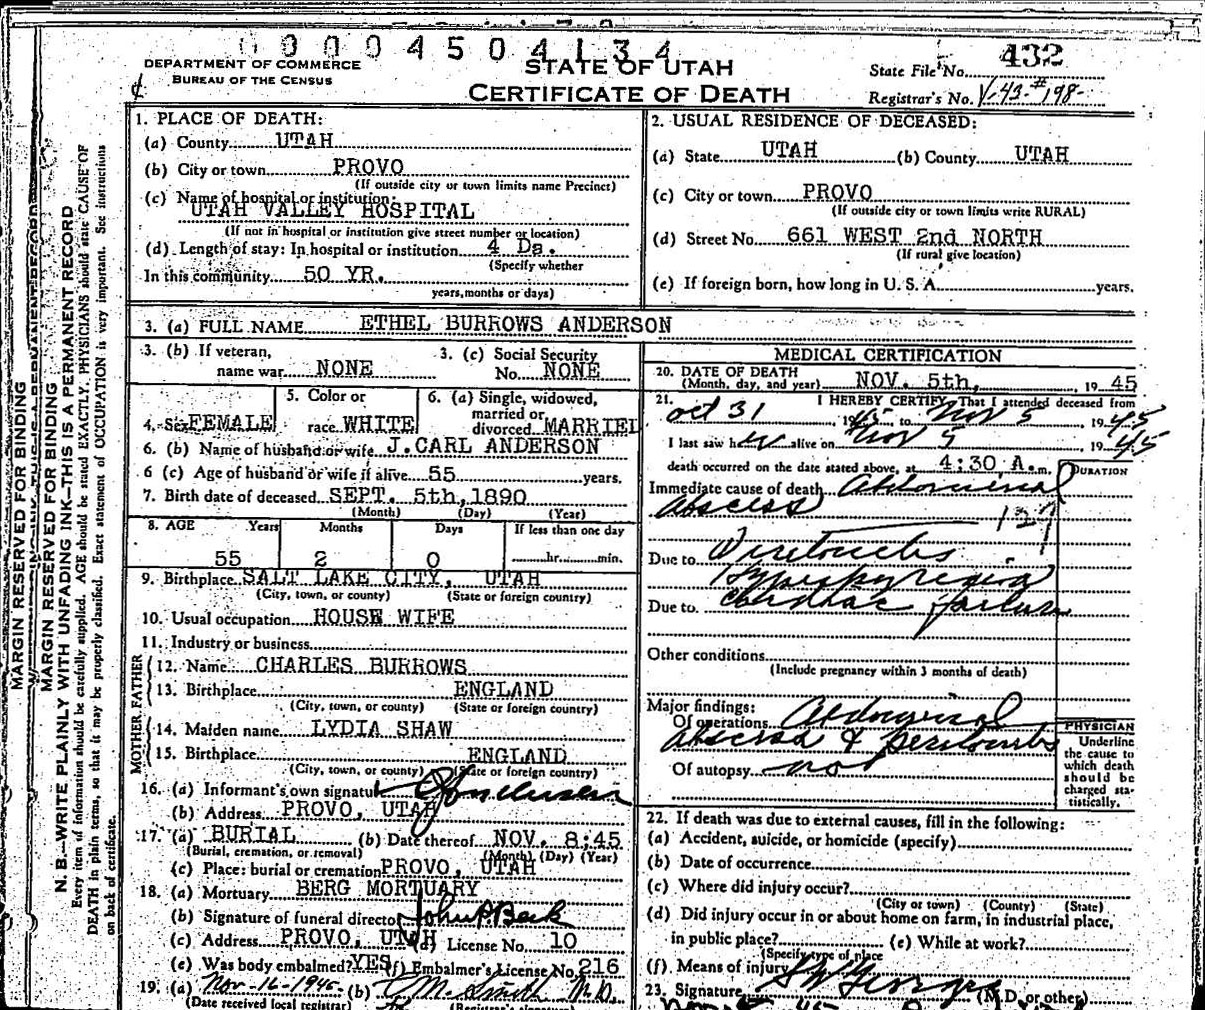 0 0 0 0 4 5 0 4 1 3 4
DEPARTMENT OF COMMERCE
BUREAU OF THE CENSUS
STATE OF UTAH
CERTIFICATE OF DEATH
State File No. 432
Registrar's No. V-43-#198-
MARGIN RESERVED FOR BINDING
MARGIN RESERVED FOR BINDING
N. B.—WRITE PLAINLY WITH UNFADING INK—THIS IS A PERMANENT RECORD
Every item of information should be carefully supplied. AGE should be stated EXACTLY. PHYSICIANS should state CAUSE OF
DEATH in plain terms, so that it may be properly classified. Exact statement of OCCUPATION is very important. See instructions
on back of certificate.
1. PLACE OF DEATH:
(a) County UTAH
(b) City or town PROVO
(If outside city or town limits name Precinct)
(c) Name of hospital or institution:
UTAH VALLEY HOSPITAL
(If not in hospital or institution give street number or location)
(d) Length of stay: In hospital or institution 4 Da.
(Specify whether
In this community 50 YR.
years, months or days)
2. USUAL RESIDENCE OF DECEASED:
(a) State UTAH (b) County UTAH
(c) City or town PROVO
(If outside city or town limits write RURAL)
(d) Street No. 661 WEST 2nd NORTH
(If rural give location)
(e) If foreign born, how long in U. S. A. years.
3. (a) FULL NAME ETHEL BURROWS ANDERSON
3. (b) If veteran,
name war NONE
3. (c) Social Security
No. NONE
4. Sex FEMALE
5. Color or
race WHITE
6. (a) Single, widowed,
married or
divorced MARRIED
6. (b) Name of husband or wife J. CARL ANDERSON
6 (c) Age of husband or wife if alive 55 years.
7. Birth date of deceased SEPT. 5th, 1890
(Month) (Day) (Year)
8. AGE Years Months Days If less than one day
55 2 0 hr. min.
9. Birthplace SALT LAKE CITY, UTAH
(City, town, or county) (State or foreign country)
10. Usual occupation HOUSE WIFE
11. Industry or business
FATHER
12. Name CHARLES BURROWS
13. Birthplace ENGLAND
(City, town, or county) (State or foreign country)
MOTHER
14. Maiden name LYDIA SHAW
15. Birthplace ENGLAND
(City, town, or county) (State or foreign country)
16. (a) Informant's own signature
(b) Address PROVO, UTAH
17. (a) BURIAL (b) Date thereof NOV. 8:45
(Burial, cremation, or removal) (Month) (Day) (Year)
(c) Place: burial or cremation PROVO, UTAH
18. (a) Mortuary BERG MORTUARY
(b) Signature of funeral director John P. Beck
(c) Address PROVO, UTAH (d) License No. 10
(e) Was body embalmed? YES (f) Embalmer's License No. 216
19. (a) Nov-16-1945- (b) M. Smith M.D.
(Date received local registrar) (Registrar's signature)
MEDICAL CERTIFICATION
20. DATE OF DEATH
(Month, day, and year) NOV. 5th, , 19 45
21. I HEREBY CERTIFY, That I attended deceased from
Oct 31 , 1945, to Nov 5 , 1945
I last saw her alive on Nov 5 , 1945
death occurred on the date stated above, at 4:30 A.m.
DURATION
Immediate cause of death Abdominal
Abscess
129
Due to Peritonitis
Due to Cardiac failure
Other conditions
(Include pregnancy within 3 months of death)
Major findings:
Of operations Abdominal
Abscess & peritonitis
Of autopsy no
PHYSICIAN
Underline
the cause to
which death
should be
charged sta-
tistically.
22. If death was due to external causes, fill in the following:
(a) Accident, suicide, or homicide (specify)
(b) Date of occurrence
(c) Where did injury occur?
(City or town) (County) (State)
(d) Did injury occur in or about home on farm, in industrial place,
in public place? (e) While at work?
(Specify type of place
(f). Means of injury
23. Signature (M.D. or other)